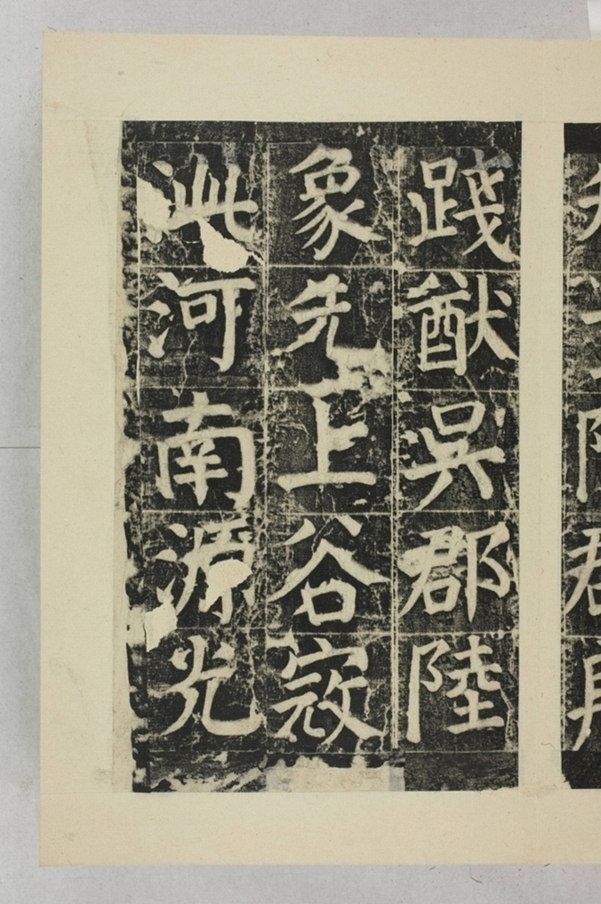 踐猷吳郡陸
象先上谷寇
泚河南源光